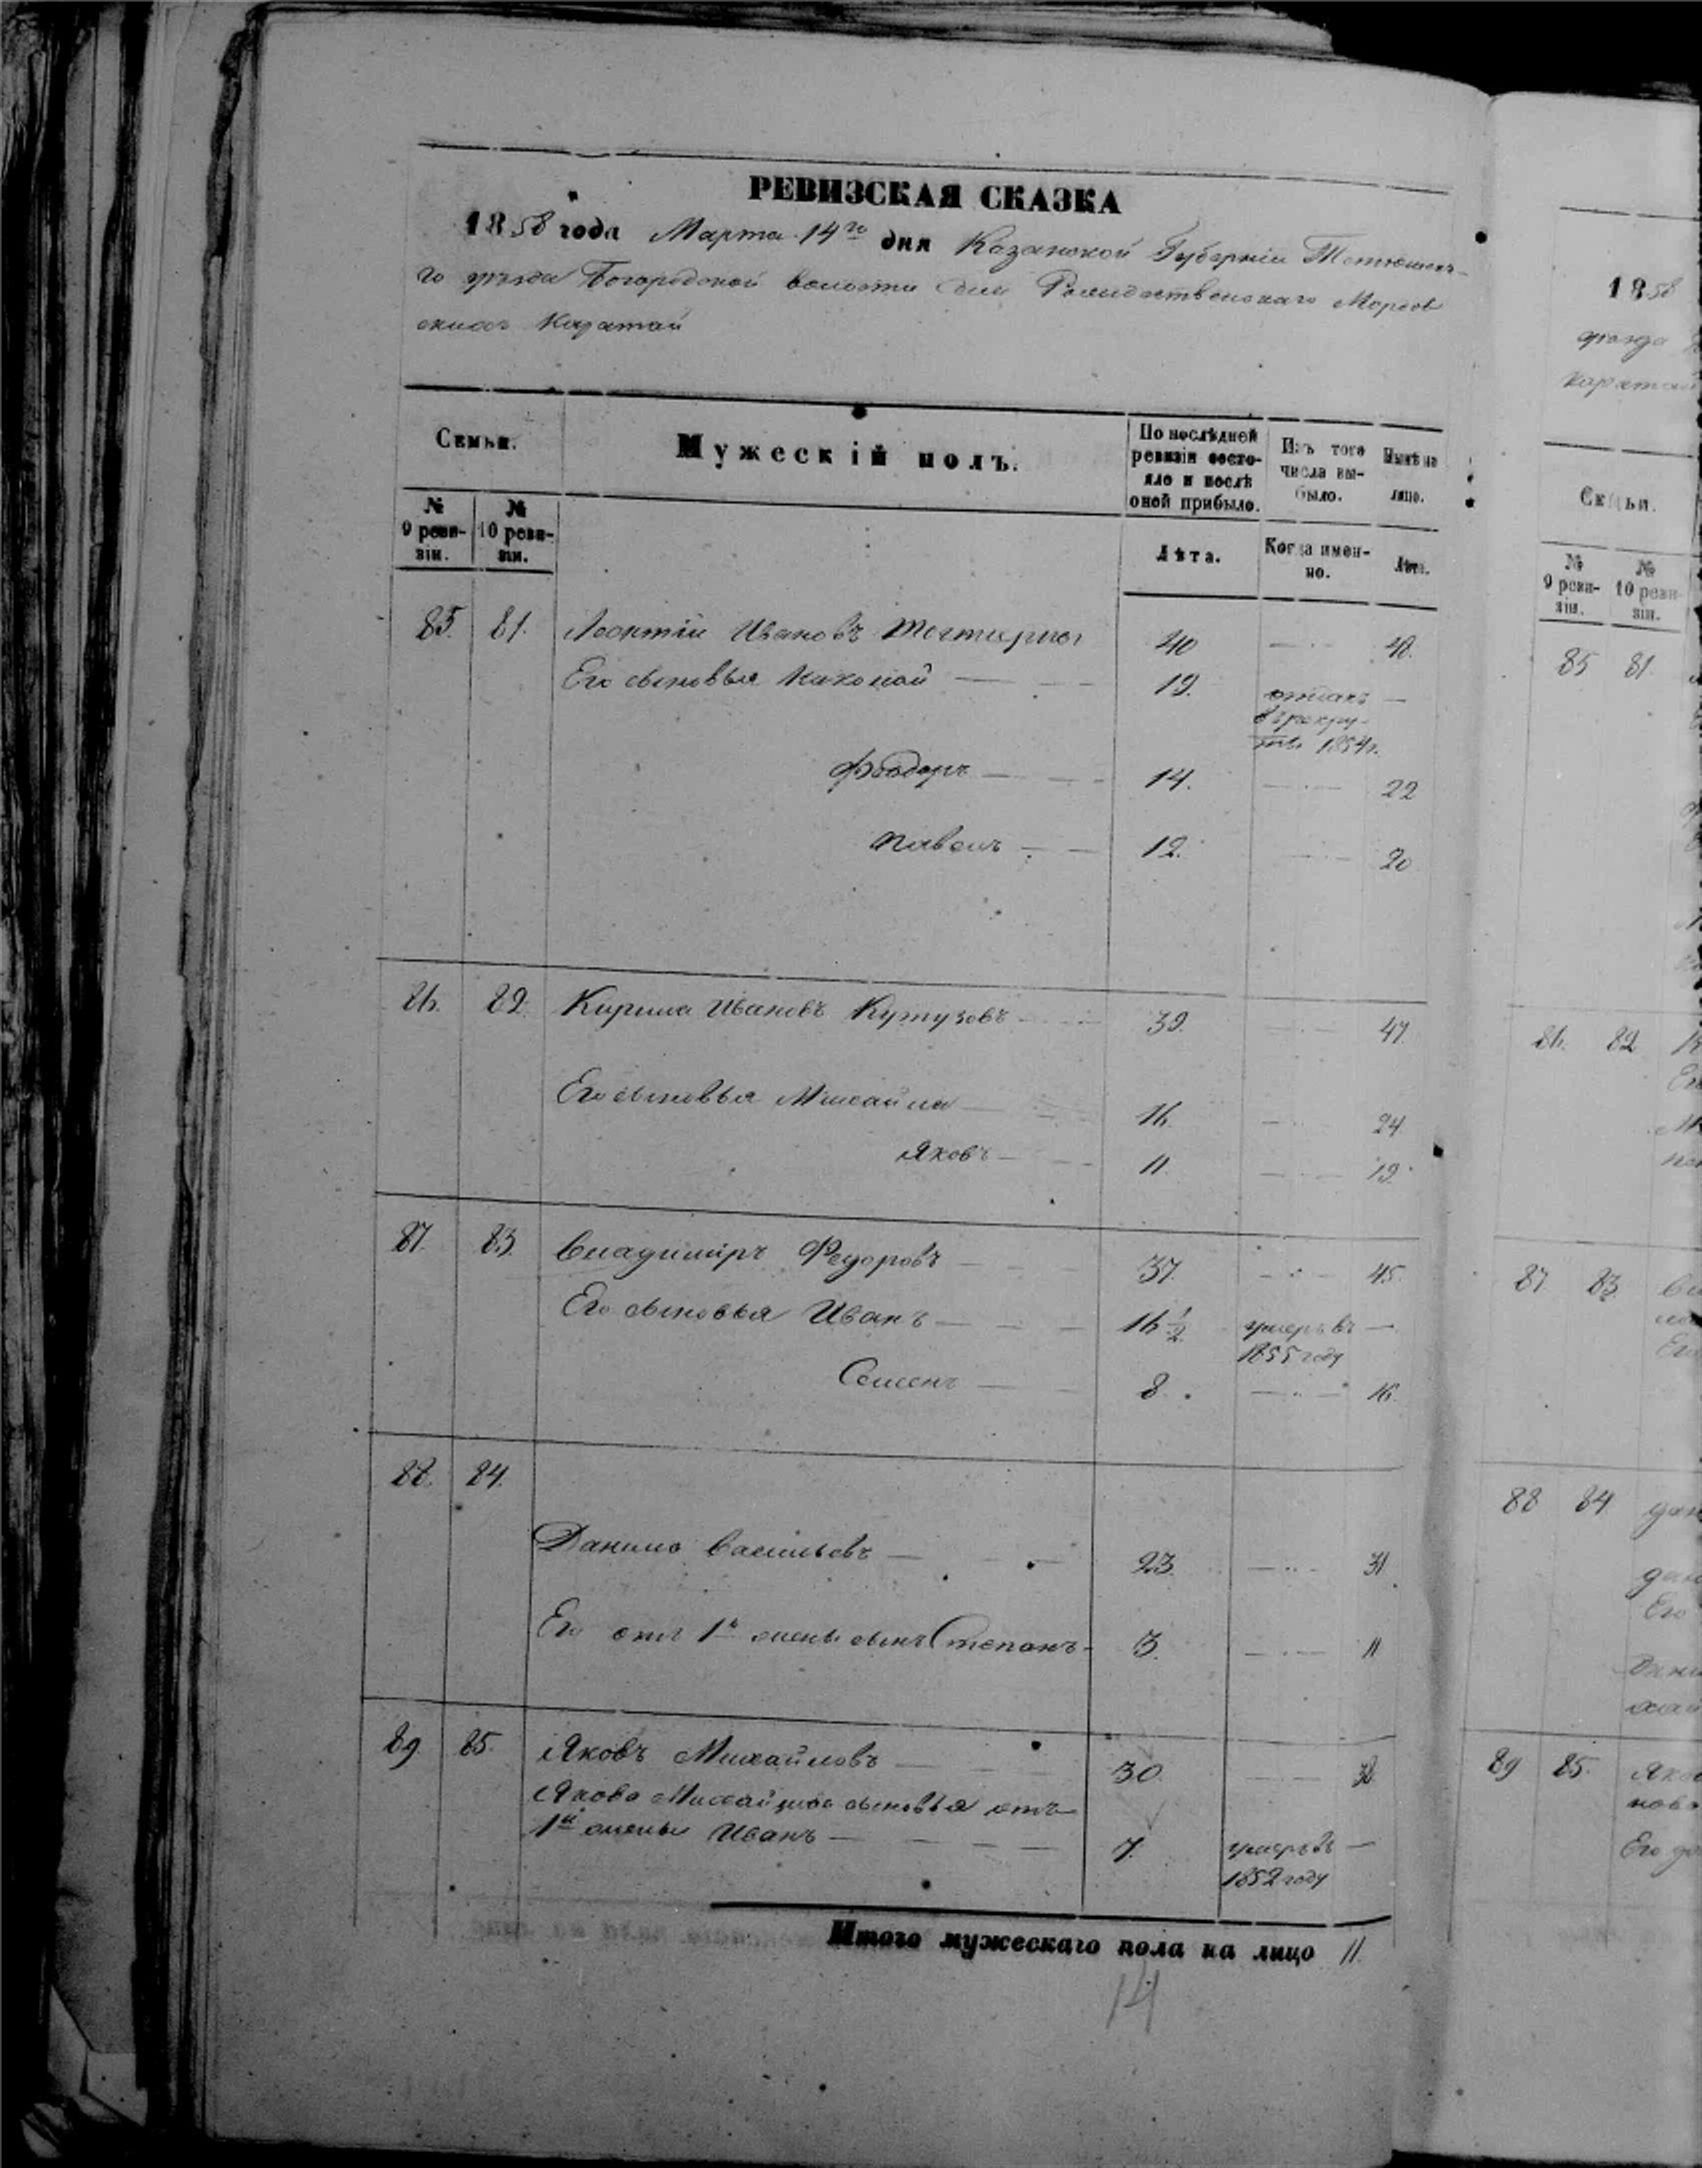 РЕВИЗСКАЯ СКАЗКА
1858 года Марта 14го дня Казанской Губерніи Тетюшска-
го уѣзда Богородской волости Рождественскаго Мордов
скихъ Каратай
Семьи.
Мужескій полъ.
По послѣдней ревизіи состо-яло и послѣ оной прибыло.
Изъ того числа вы-было.
Нынѣ на лицо.
№ 9 реви-зіи.
№ 10 реви-зіи.
Лѣта.
Когда имен-но.
Лѣта.
85. 81. Леонтій Ивановъ 40 48.
Его сыновья Николай 19. отданъ
въ рекру-
ты 1854 г.
Феодоръ 14. 22
Павелъ 12. 20
86. 82. Кирила Ивановъ Кутузовъ 39. 47.
Его сыновья Михайла 16 24
Яковъ 11. 19.
87. 83. Владиміръ Федоровъ 37. 45.
Его сыновья Иванъ 16 1/2 умеръ въ
1855 году
Семенъ 8. 16.
88. 84.
Данило Васильевъ 23. 31
Его отъ 1й жены сынъ Степанъ 3. 11
89. 85. Яковъ Михайловъ 30. 38.
Якова Михайлова сыновья отъ
1й жены Иванъ 7. умеръ въ
1852 году
Итого мужескаго пола на лицо 11.
14
1858
уѣзда
Каратай
Семьи.
№ 9 реви-зіи.
№ 10 реви-зіи.
85 81.
86. 82
87 83
88 84
Его
89 85.